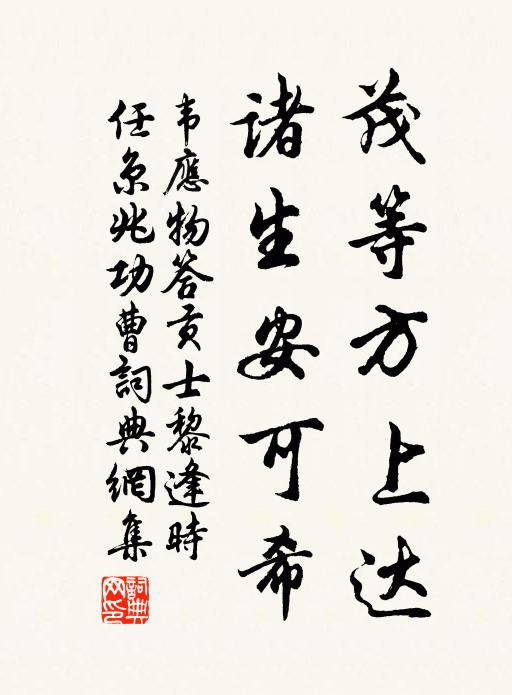 茂等方上达
诸生安可希
韦應物答贡士黎逢時
任京兆功曹詞典網集
詞典
网印